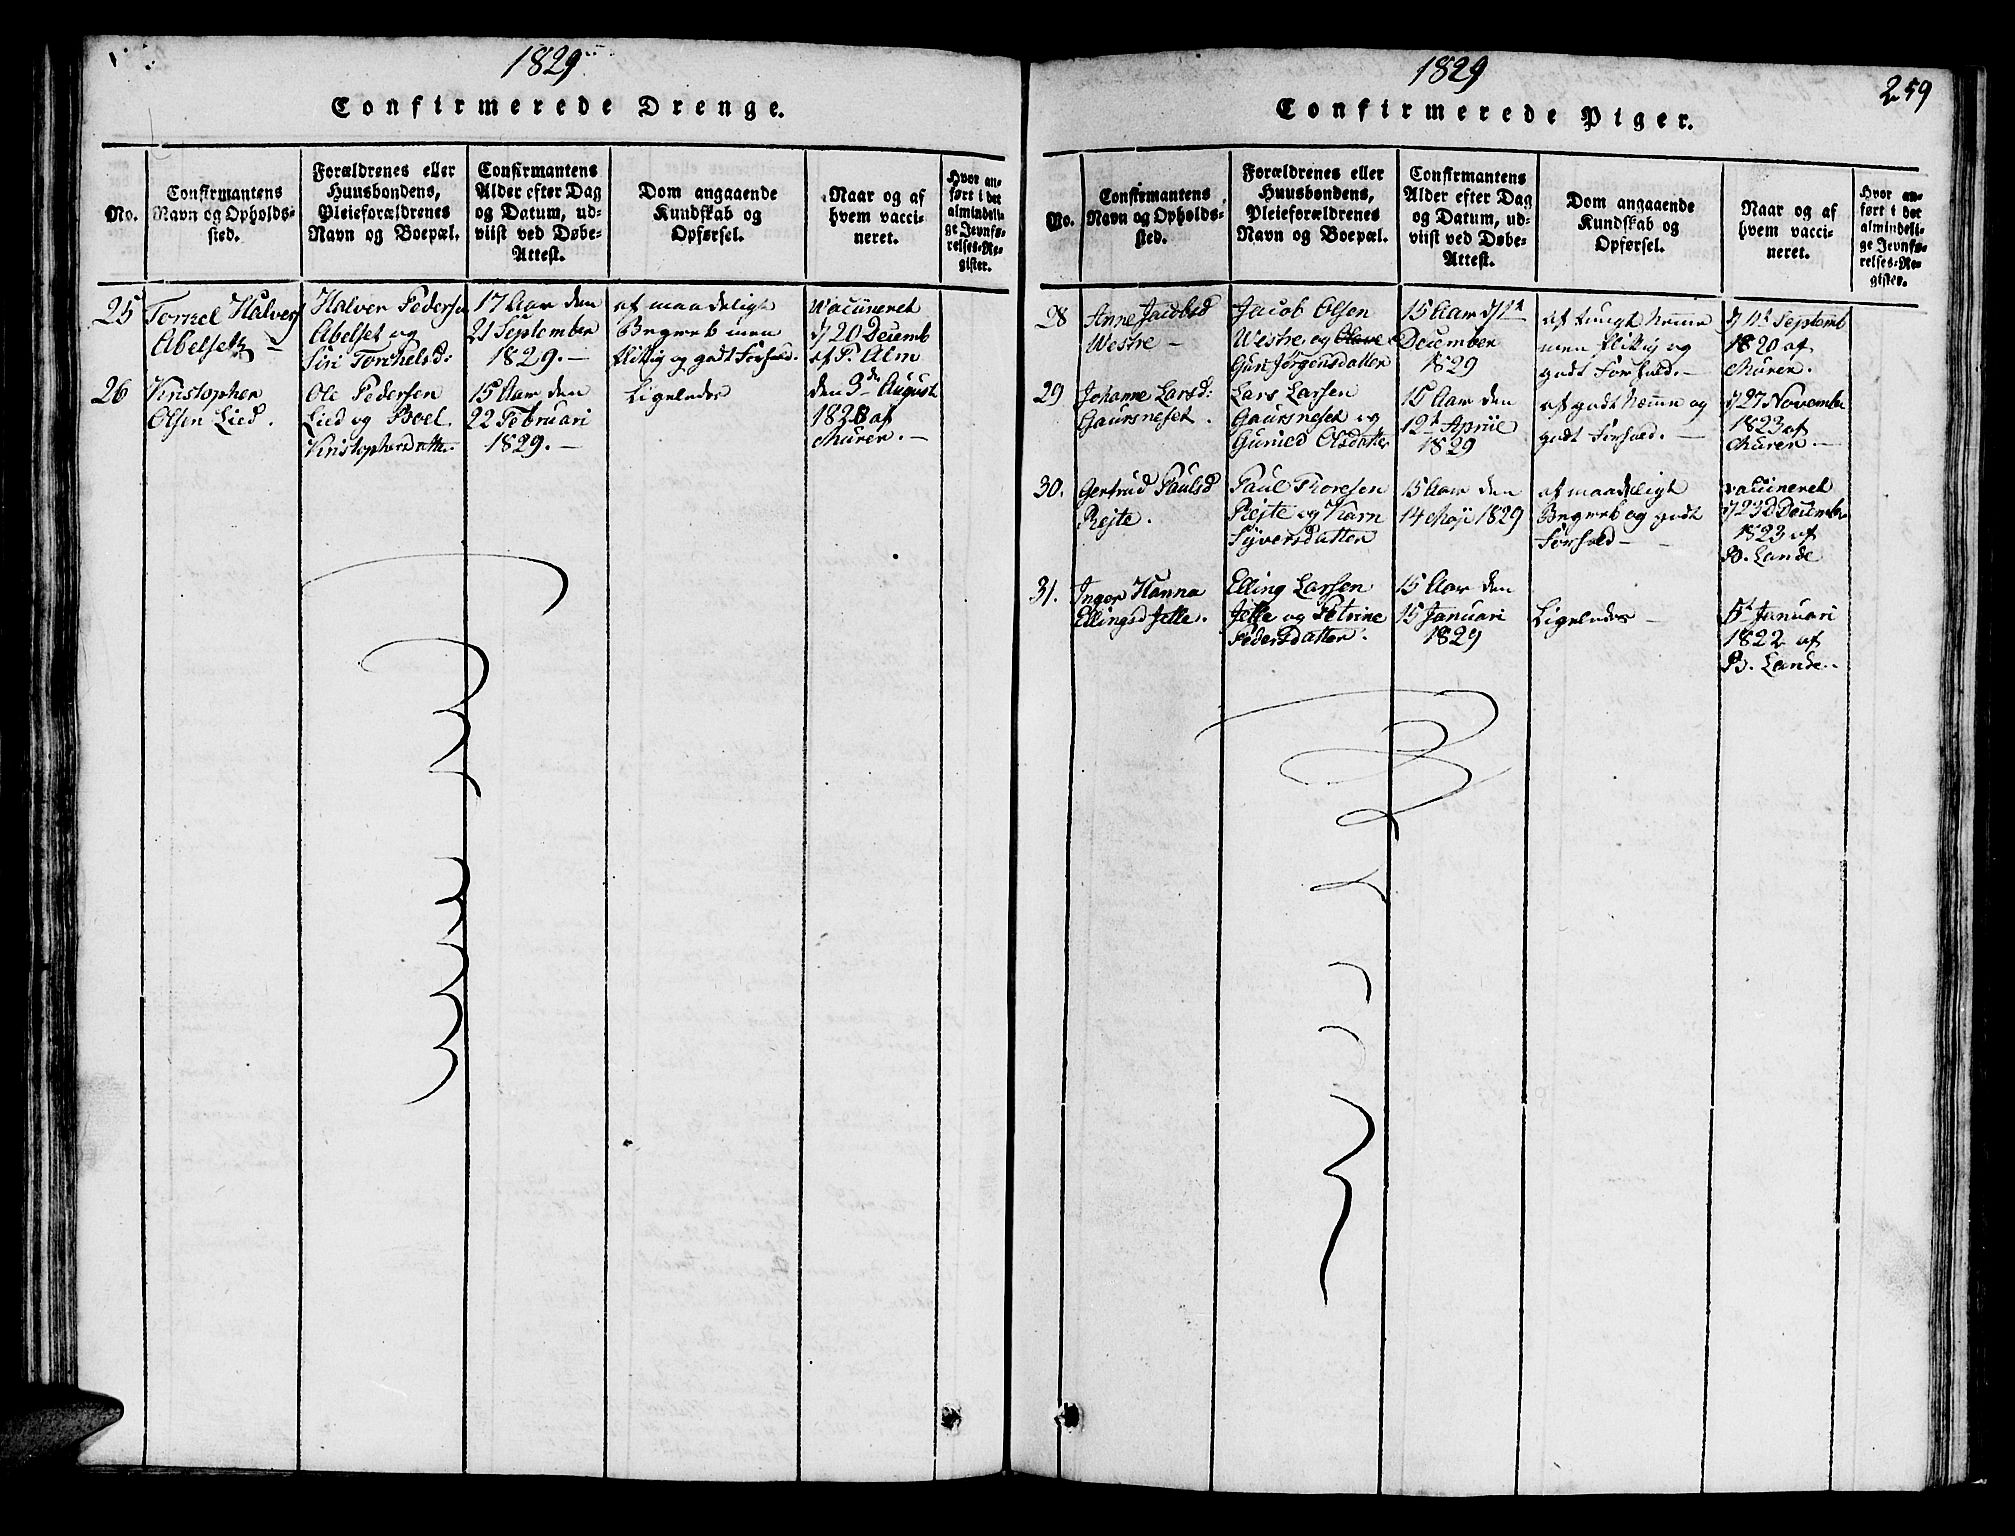 1829
Confirmerede Drenge.
No.
Confirmantens
Navn og Opholds-
sted.
Forældrenes eller
Huusbondens,
Pleieforældrenes
Navn og Boepæl.
Confirmantens
Alder efter Dag
og Datum, ud-
viist ved Døbe-
Attest.
Dom angaaende
Kundskab og
Opførsel.
Naar og af
hvem vacci-
neret.
Hvor an-
ført i det
almindeli-
ge Jevnfø-
relses-Re-
gister.
25
Torkel Halvers
Abelset
Halvor Pederse
Abelset og
Siri Torkelsd:
17 Aar den
21 September
1829. –
af maadeligt
Begreb men
flittig og godt Forhold.
Vaccineret
d 20 Decemb
af P. Alm
26
Kristopher
Olsen Lied.
Ole Pedersen
Lied og Boel
Kristophersdatter
15 Aar den
22 Februari
1829. –
Ligeledes
den 3de August
1823 af
Muren. –
1829
259
Confirmerede Piger.
No.
Confirmantens
Navn og Opholds-
sted.
Forældrenes eller
Huusbondens,
Pleieforældrenes
Navn og Boepæl.
Confirmantens
Alder efter Dag
og Datum, ud-
viist ved Døbe-
Attest.
Dom angaaende
Kundskab og
Opførsel.
Naar og af
hvem vacci-
neret.
Hvor an-
ført i det
almindeli-
ge Jevnfø-
relses-Re-
gister.
28
Anne Jacobsd
Westre –
Jacob Olsen
Westre og
Guri Jørgensdatter
15 Aar d 1te
December
1829
af tungt Nemme
men flittig og
godt Forhold. –
Septemb
1820 af
Muren.
29
Johanne Larsd:
Gaursneset.
Lars Larsen
Gaursneset og
Guned Olsdatter
15 Aar den
12t April
1829
af godt Nemme og
godt Forhold. –
d 27 Novembe
1823 af
Muren –
30.
Gertrud Paulsd
Rejte.
Paul Thoresen
Rejte og Karn
Syversdatter
15 Aar den
14 Maji 1829
af maadeligt
Begreb og godt
Forhold –
vaccineret
d 23d Decembe
1823 af
B. Lande
31.
Inger Hanna
Ellingsd Jette.
Elling Larsen
Jette og Petrine
Pedersdatter.
15 Aar den
15 Januari
1829
Ligeledes –
5t Januari
1822 af
B. Lande.